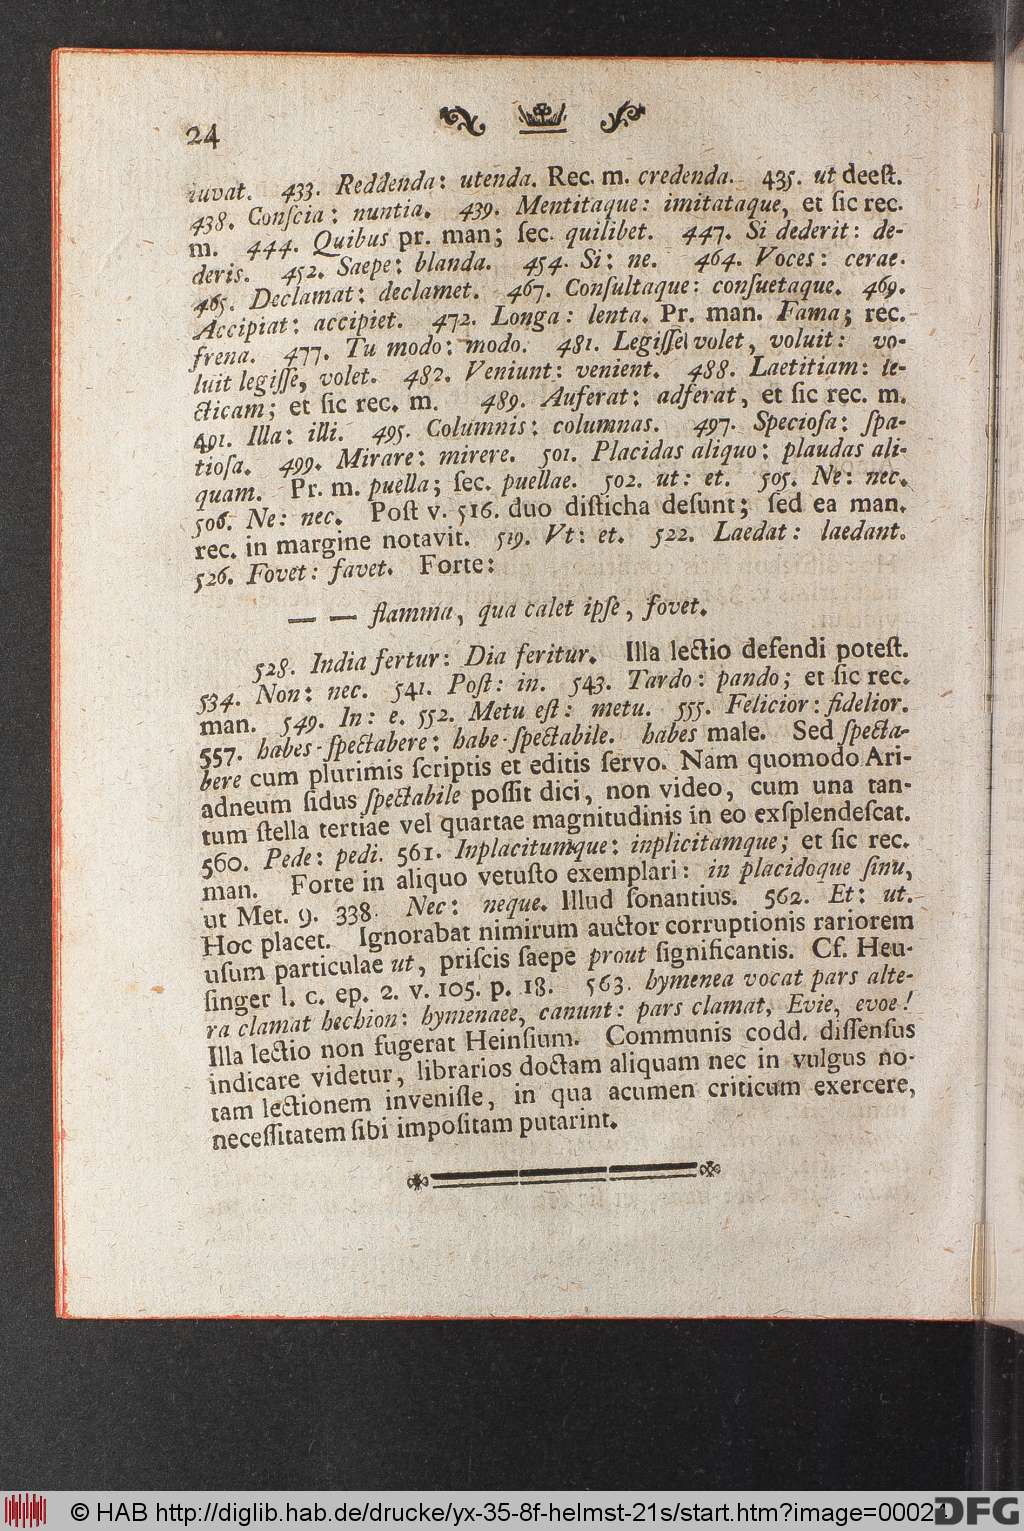 24
iuvat. 433. Reddenda: utenda. Rec. m. credenda. 435. ut deeſt.
438. Conſcia: nuntia. 439. Mentitaque: imitataque, et ſic rec.
m. 444. Quibus pr. man; ſec. quilibet. 447. Si dederit: de-
deris. 452. Saepe: blanda. 454. Si: ne. 464. Voces: cerae.
465. Declamat: declamet. 467. Conſultaque: conſuetaque. 469.
Accipiat: accipiet. 472. Longa: lenta. Pr. man. Fama; rec.
frena. 477. Tu modo: modo. 481. Legiſſe volet, voluit: vo-
luit legiſſe, volet. 482. Veniunt: venient. 488. Laetitiam: le-
cticam; et ſic rec. m. 489. Auferat: adferat, et ſic rec. m.
491. Illa: illi. 495. Columnis: columnas. 497. Specioſa: ſpa-
tioſa. 499. Mirare: mirere. 501. Placidas aliquo: plaudas ali-
quam. Pr. m. puella; ſec. puellae. 502. ut: et. 505. Ne: nec.
506. Ne: nec. Poſt v. 516. duo diſticha deſunt; ſed ea man.
rec. in margine notavit. 519. Vt: et. 522. Laedat: laedant.
526. Fovet: favet. Forte:
— — flamma, qua calet ipſe, fovet.
528. India fertur: Dia feritur. Illa lectio defendi poteſt.
534. Non: nec. 541. Poſt: in. 543. Tardo: pando; et ſic rec.
man. 549. In: e. 552. Metu eſt: metu. 555. Felicior: fidelior.
557. habes-ſpectabere: habe-ſpectabile. habes male. Sed ſpecta-
bere cum plurimis ſcriptis et editis ſervo. Nam quomodo Ari-
adneum ſidus ſpectabile poſſit dici, non video, cum una tan-
tum ſtella tertiae vel quartae magnitudinis in eo exſplendeſcat.
560. Pede: pedi. 561. Inplacitumque: inplicitamque; et ſic rec.
man. Forte in aliquo vetuſto exemplari: in placidoque ſinu,
ut Met. 9. 338. Nec: neque. Illud ſonantius. 562. Et: ut.
Hoc placet. Ignorabat nimirum auctor corruptionis rariorem
uſum particulae ut, priſcis ſaepe prout ſignificantis. Cf. Heu-
ſinger l. c. ep. 2. v. 105. p. 18. 563. hymenea vocat pars alte-
ra clamat hechion: hymenaee, canunt: pars clamat, Evie, evoe!
Illa lectio non fugerat Heinſium. Communis codd. diſſenſus
indicare videtur, librarios doctam aliquam nec in vulgus no-
tam lectionem inveniſſe, in qua acumen criticum exercere,
neceſſitatem ſibi impoſitam putarint.
© HAB http://diglib.hab.de/drucke/yx-35-8f-helmst-21s/start.htm?image=00024
DFG